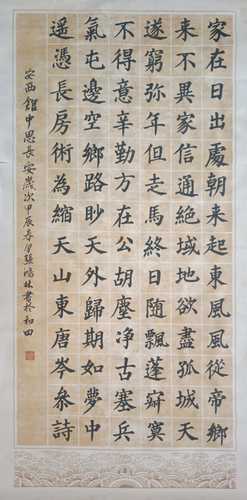 家在日出處朝來起東風風從帝鄉
來不異家信通絕域地欲盡孤城天
遂窮弥年但走馬終日隨飄蓬寂寞
不得意辛勤方在公胡塵净古塞兵
氣屯邊空鄉路眇天外歸期如夢中
遥憑長房術為縮天山東唐岑參詩
安西館中思長安歲次甲辰春月張鴻林書於和田